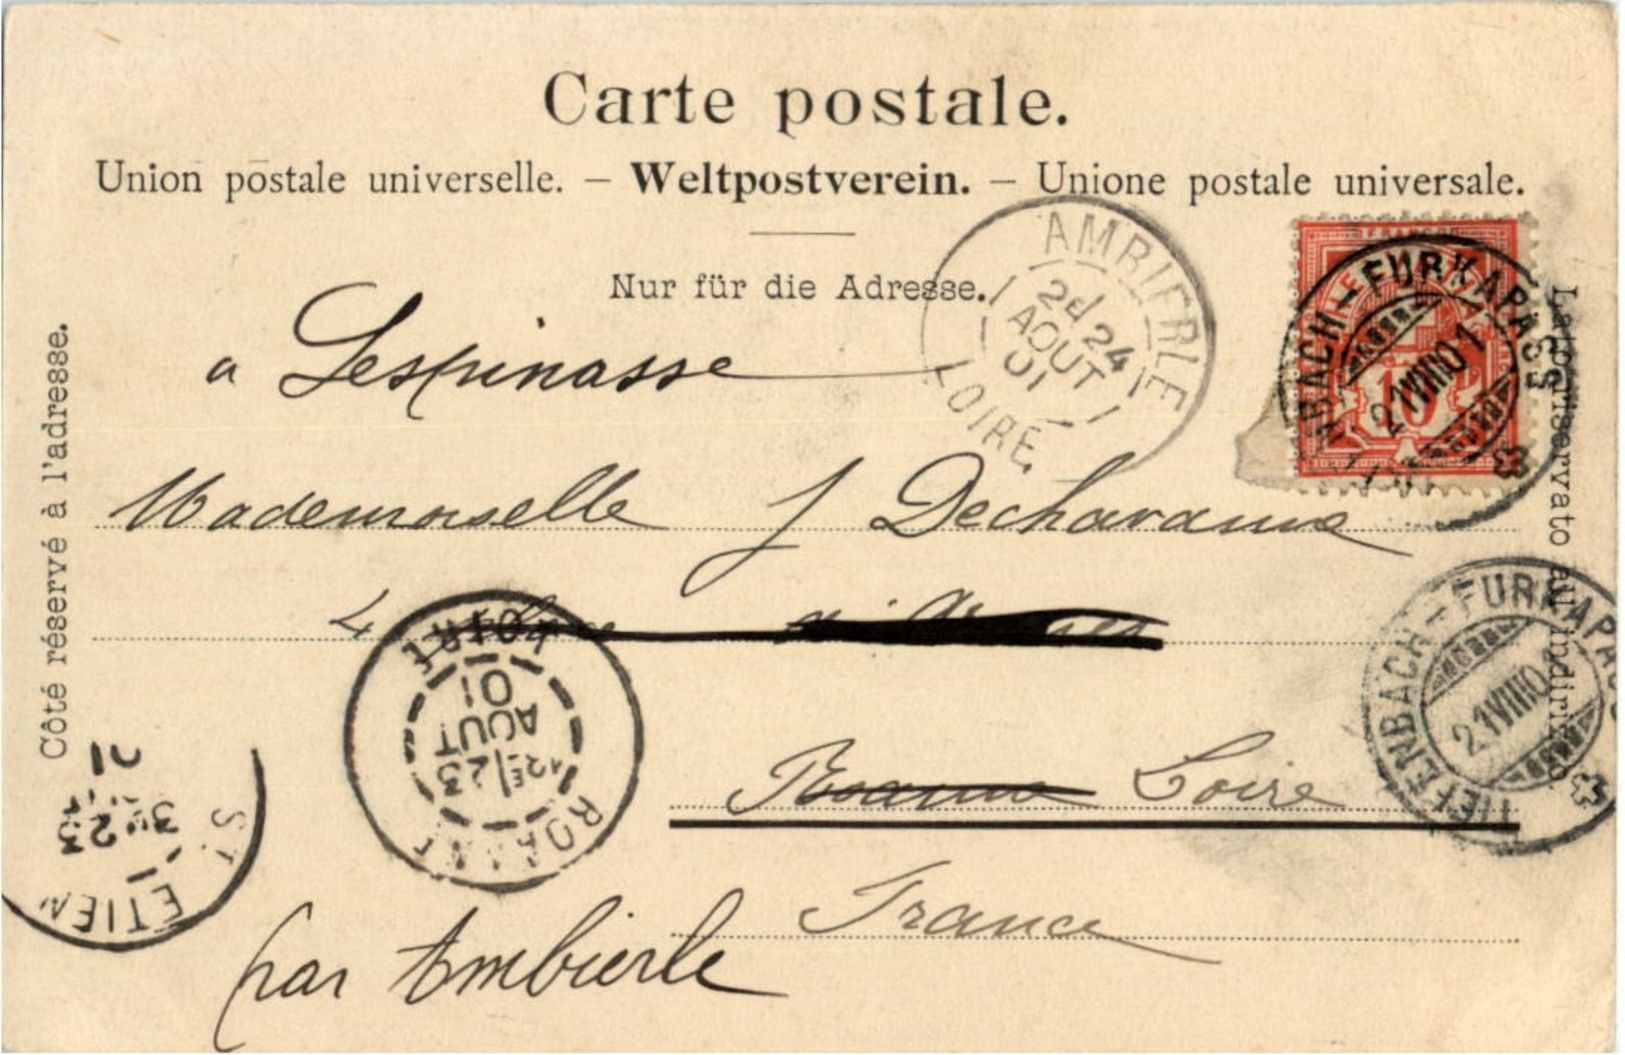 Carte postale.
Union postale universelle. – Weltpostverein. – Unione postale universale.
Nur für die Adresse.
Côté réservé à l'adresse.
Lato riservato all'indirizzo
a Lespinasse
Mademoiselle J Dechavanne
4
Roanne Loire
France
par Ambierle
AMBIERLE
2E 24
AOUT
01
LOIRE
FRANCO
10
NBACH–FURKAPASS
21 VIII 01
TIEFENBACH–FURKAPASS
21 VIII 01
ROANNE
12 2 23
AOUT
01
LOIRE
ST ETIEN
3 23
01